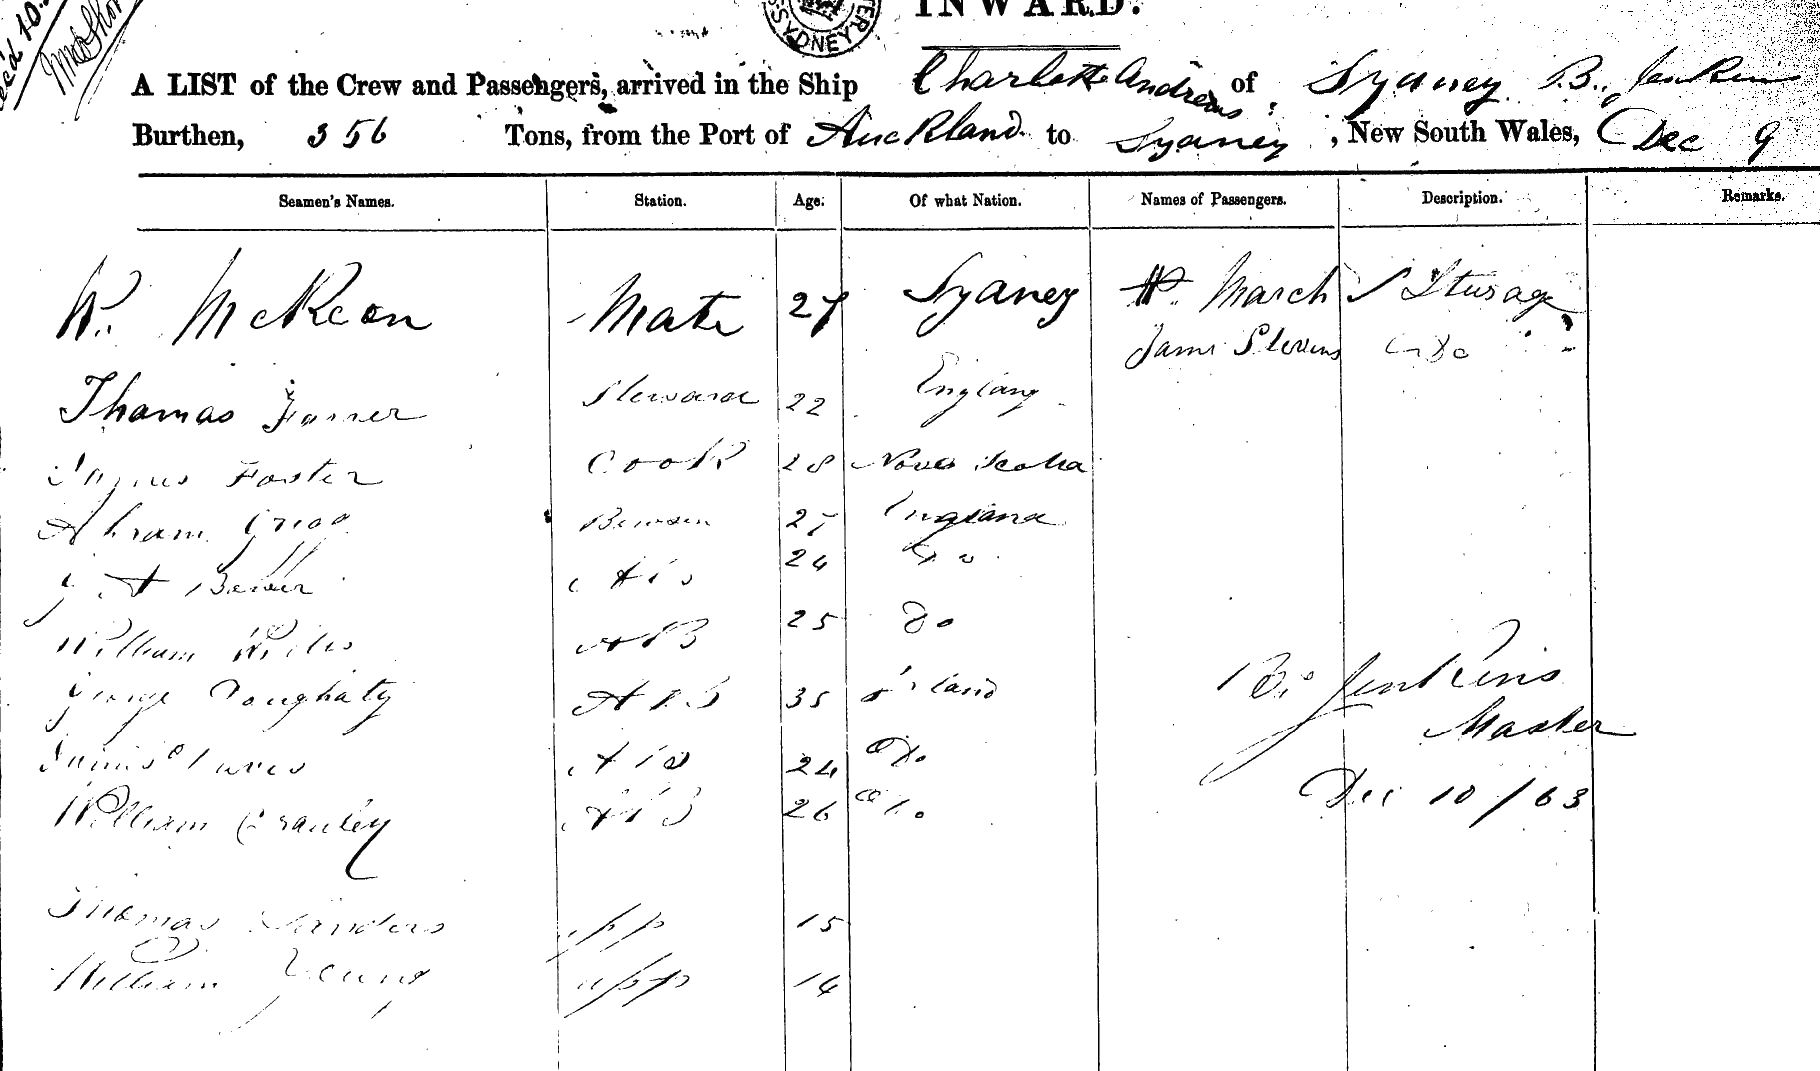 INWARD.
SYDNEY
A LIST of the Crew and Passengers, arrived in the Ship Charlotte Andrews of Sydney B. Jenkins
Burthen, 356 Tons, from the Port of Auckland to Sydney, New South Wales, Dec 9
Seamen's Names. Station. Age. Of what Nation. Names of Passengers. Description. Remarks.
W. McKeon Mate 27 Sydney W. March Sturage
James Stevens Do
Thomas Steward 22 England
James Foster Cook 28 Nova Scotia
Abram Gregg 27 England
24 Do
William AB 25 Do
George Doughaty AB 35 Irland
James AB 24 Do
William AB 26 Do
B. Jenkins
Master
Dec 10/63
Thomas Sanders app 15
William Young app 14